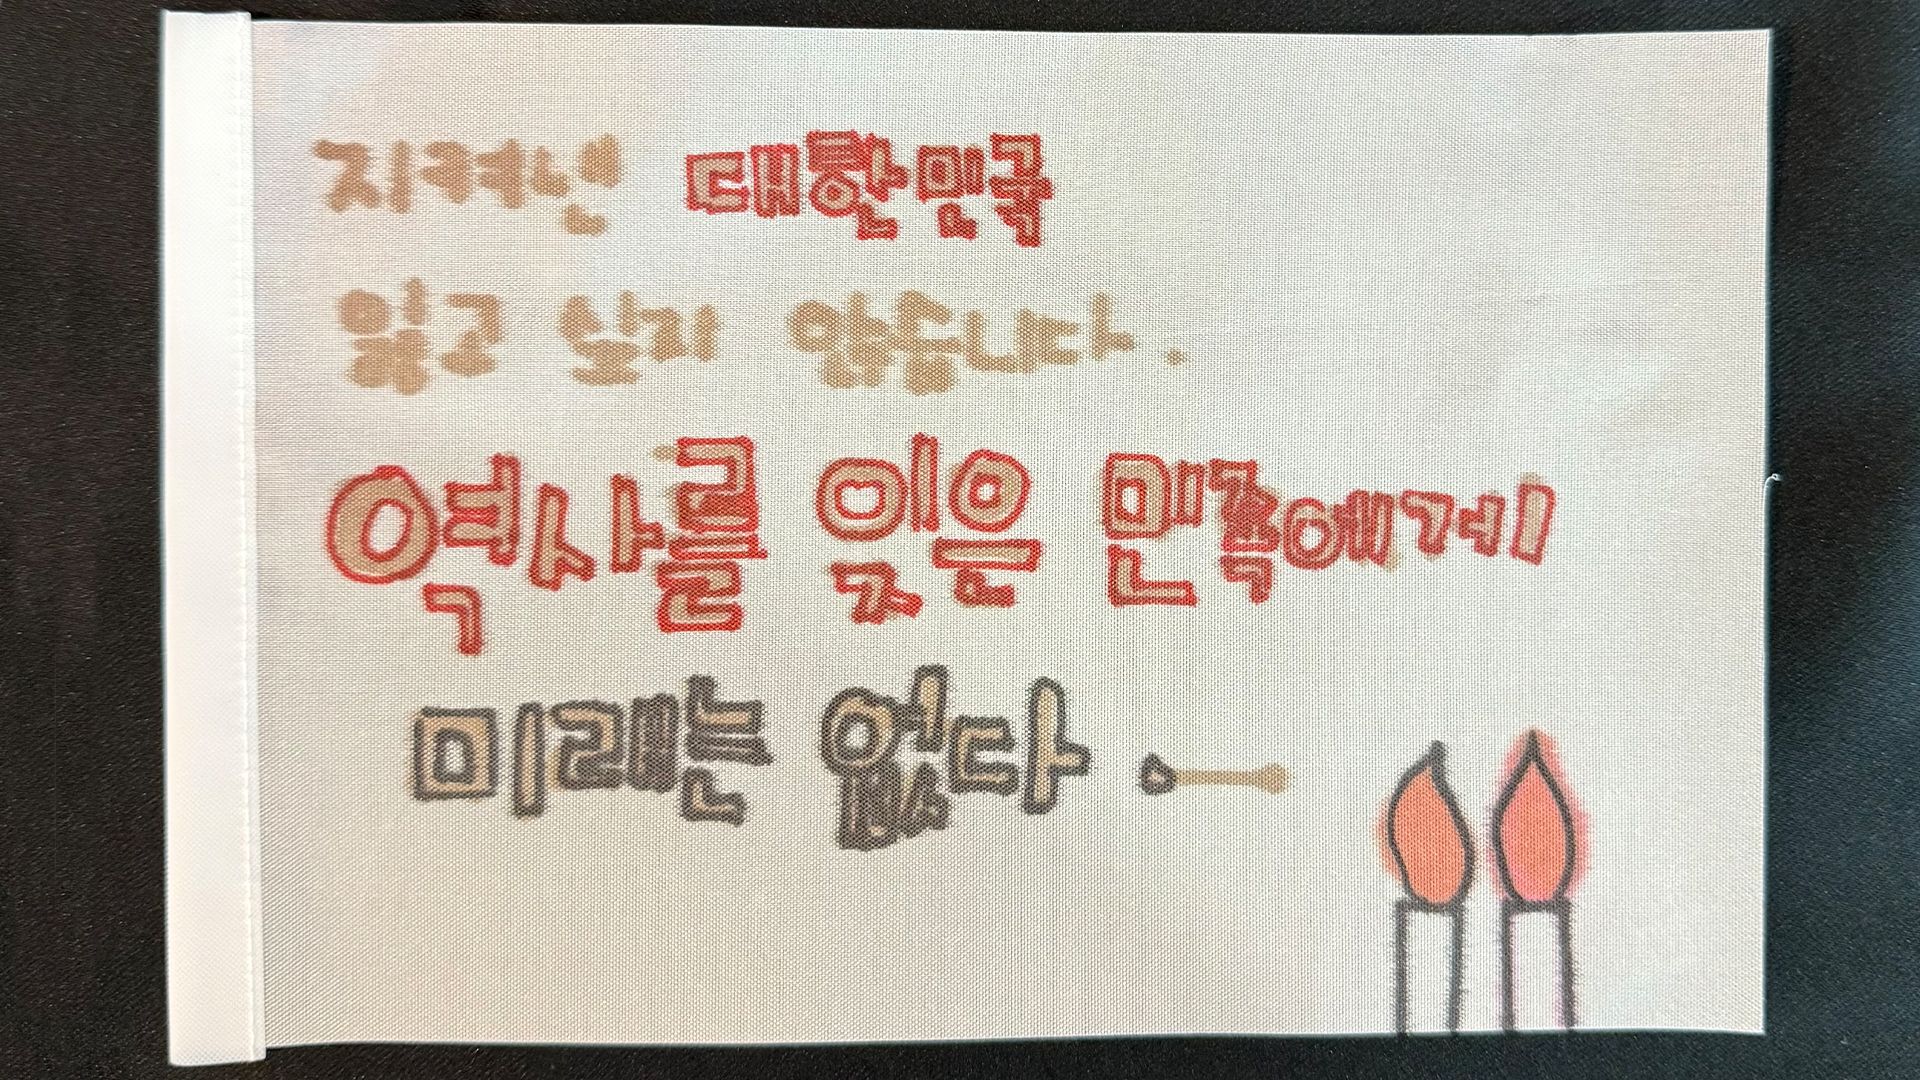 지켜낸 대한민국
잃고 싶지 않습니다.
역사를 잊은 민족에게
미래는 없다.